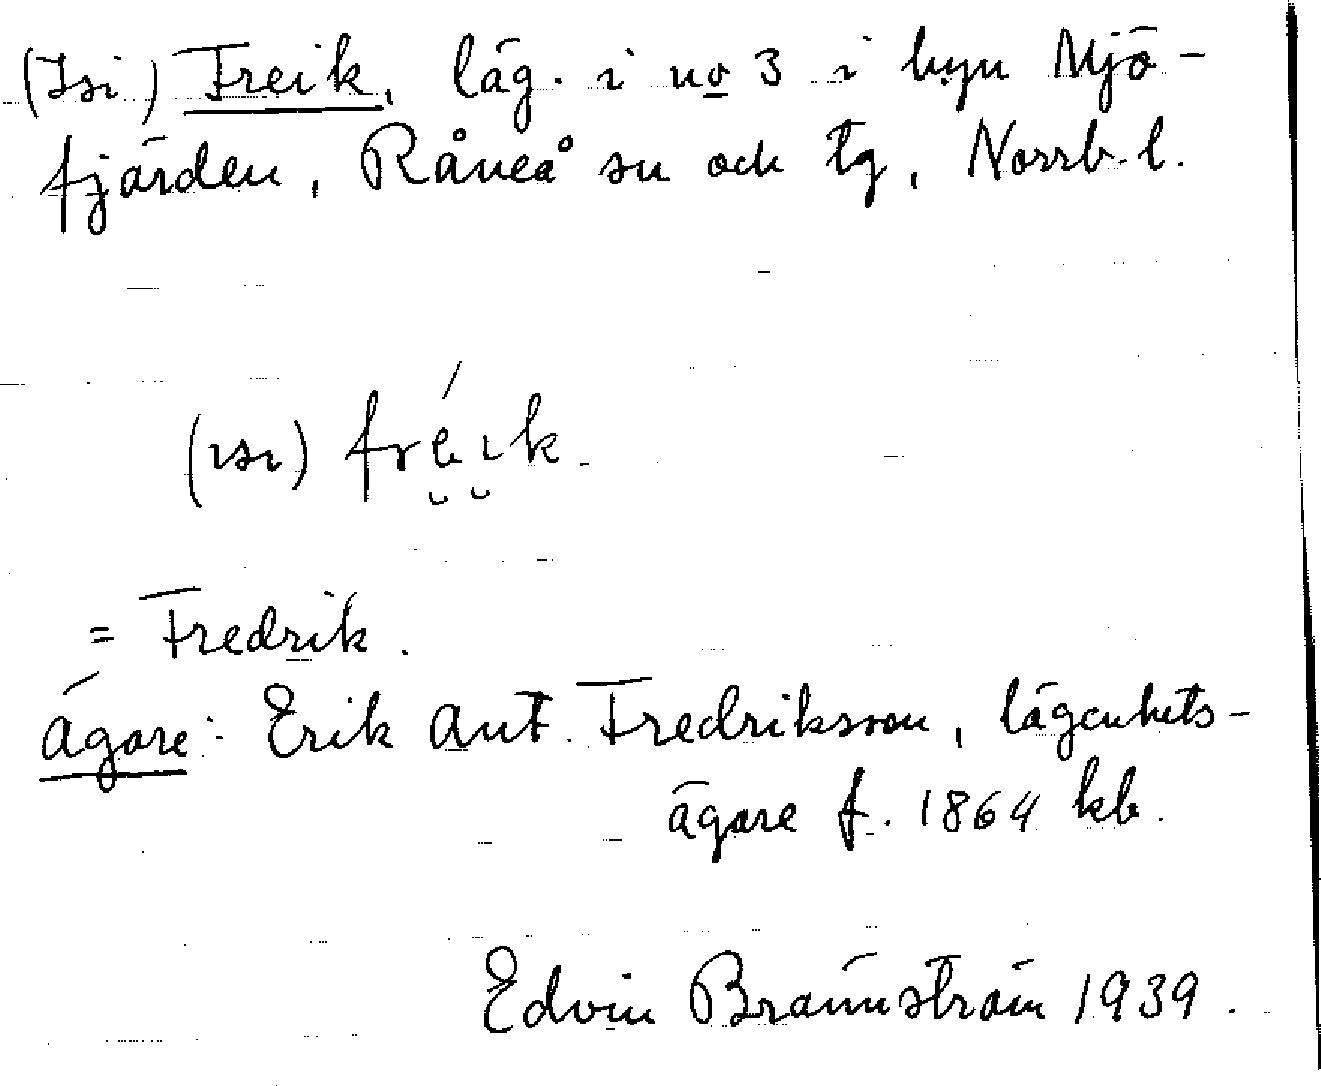 (Isi) Freik, läg. i no 3 i byn Mjö-
fjärden, Råneå sn och tg, Norrb. l.
(ısı) fréık.
= Fredrik.
ägare: Erik Ant. Fredriksson, lägenhets-
ägare f. 1864 kb.
Edvin Brännström 1939.